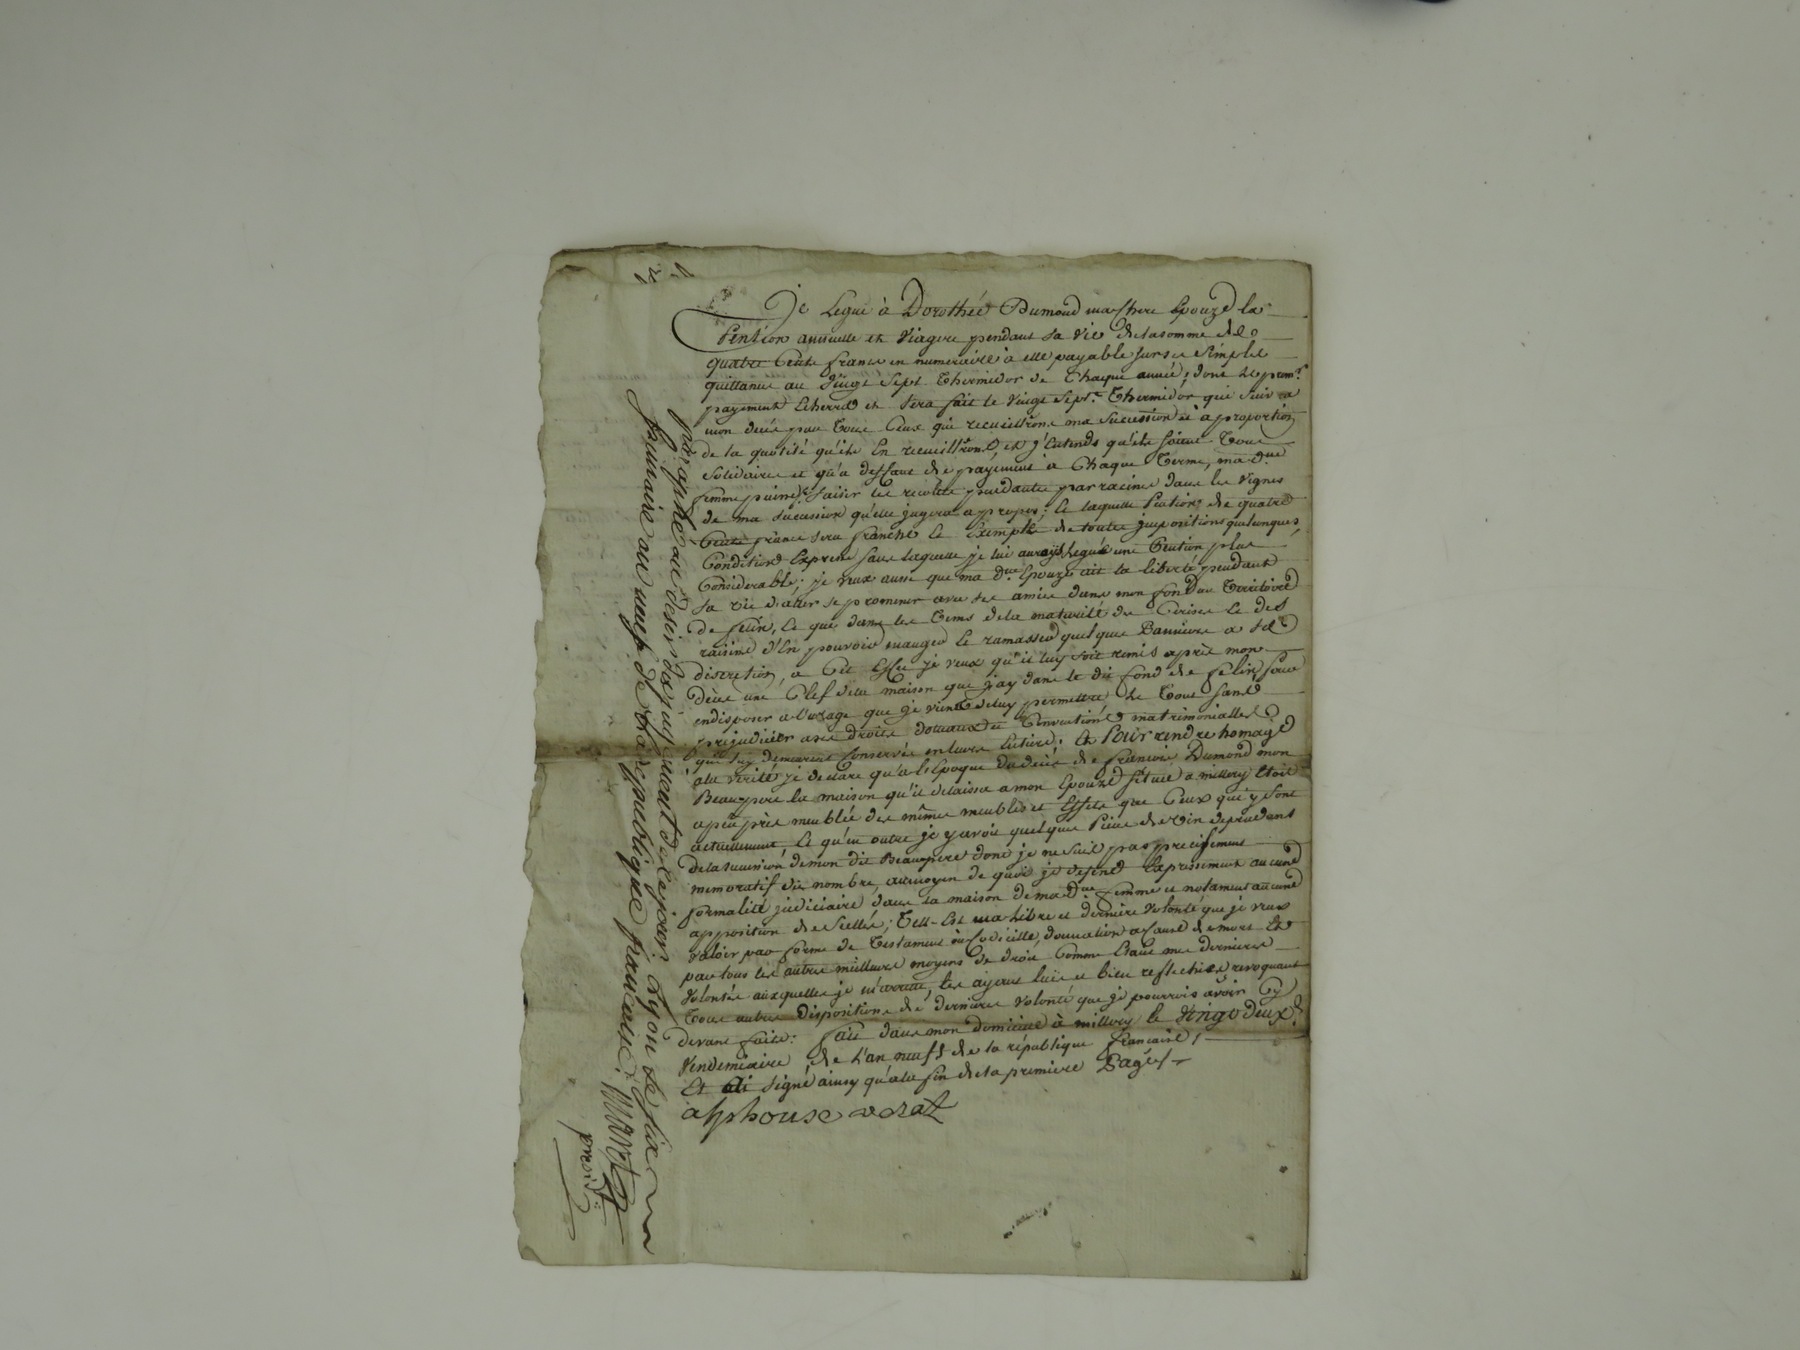 Je Legue à Dorothée Dumond ma Chere Epouze la
Pention annuelle et Viagere pendant sa vie de la somme de
quatre Cents francs en numeraire à elle payable sur sa simple
quittance au vingt Sept Thermidor de Chaque année, dont le prem.r
payement Echerra et sera fait le vingt Sept.e Thermidor qui suivra
mon decés par tous Ceux qui recueilliront ma Succession et a proportion
de la quotité qu'ils En recueilliront, et j'Entends qu'ils soient Tous
Solidaires et qu'a deffaut de payement à Chaque Terme, ma d.e
femme puisse saisir les recoltes pendantes par racines dans les Vignes
de ma succession qu'elle jugera apropos; la quelle Pention de quatre
Cents francs sera franche et Exempte de toutes impositions quelconques,
Condition Expresse sans laquelle je lui aurois Legué une Pention plus
Considerable; je veux aussi que ma d.e Epouze ait la liberté pendant
sa vie d'aller se promener avec ses amies dans mon fond au Territoire
de felin, Et que dans les Tems de la maturité des Cerises et des
raisins d'En pouvoir manger Et ramasser quelques Bannieres a sa
discretion, a Cet Effet je veux qu'il luy soit remis après mon
décés une Clef de la maison que j'ay dans le dit fond de felin pour
en disposer a l'usage que je viens de luy permettre Le Tout sans
prejudicier aux droits dotaux et Conventions matrimonialles
qui luy demeurent Conservés en leurs Entiers; Et Pour rendre homage
à la vérité je declare qu'a l'Epoque du décés de francois Dumond mon
Beaupere la maison qu'il delaissa a mon Epouze située a millery Etoit
apeuprès meublée des mêmes meubles et Effets que Ceux qui y sont
actuellement, Et qu'en outre je y avois quelques Pieces de vin dependant
de la succession de mon dit Beaupere dont je ne suis pas precisement
memoratif du nombre, au moyen de quoi je defend Expressement aucune
formalité judiciaire dans la maison de ma d.e femme et notament aucune
apposition de scellés; Telle Est ma libre et derniere volonté que je veux
valoir par forme de Testament ou Codicille, donnation a cause de mort Et
par tous les autres meilleurs moyens de droit Comme Etant mes dernieres
volontés aux quelles je m'arrette, les ayant lües et bien reflechies revoquant
Tous autres dispositions de derniere volonté que je pourrois avoir Cy
devant faite: fait dans mon domicile à millery le Vingt deux
Vendemiaire de L'an neuf de la république francaise,
Et ai signé ainsy qu'a la fin de la premiere Page
alphonse verat
paraphé au desir du jugement de ce jour Lyon le six
frimaire an neuf de la République francaise.
présid.t